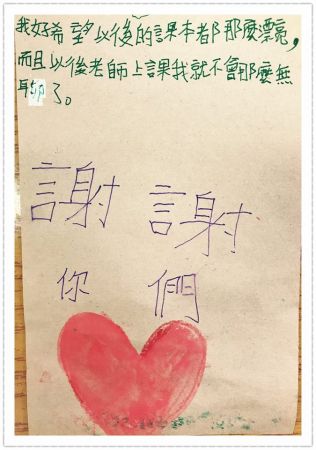 我好希望以後的課本都那麼漂亮，
而且以後老師上課我就不會那麼無
聊了。
謝謝
你們